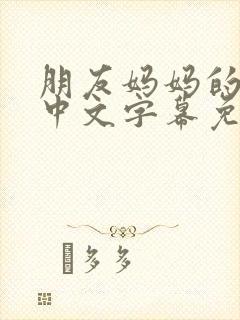 朋友妈妈的
中文字幕免
多多